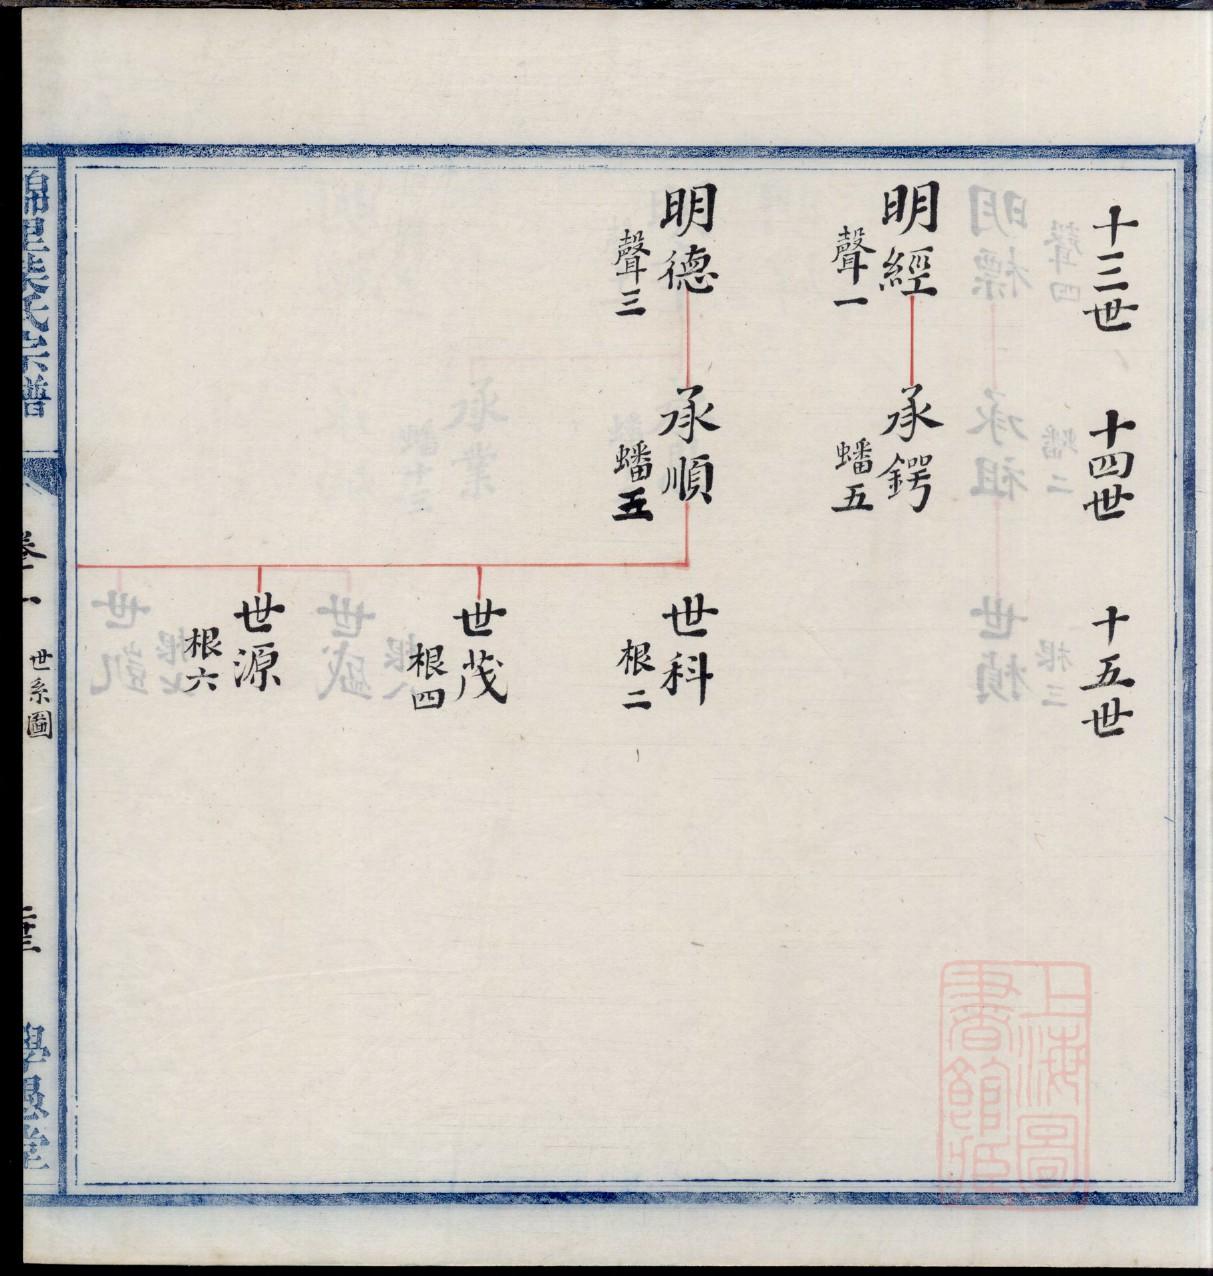 十三世
十四世
十五世
明經
聲一
承鍔
蟠五
明德
聲三
承順
蟠五
世科
根二
世茂
根四
世源
根六
氏宗譜
卷一
世系圖
上海圖
書館藏